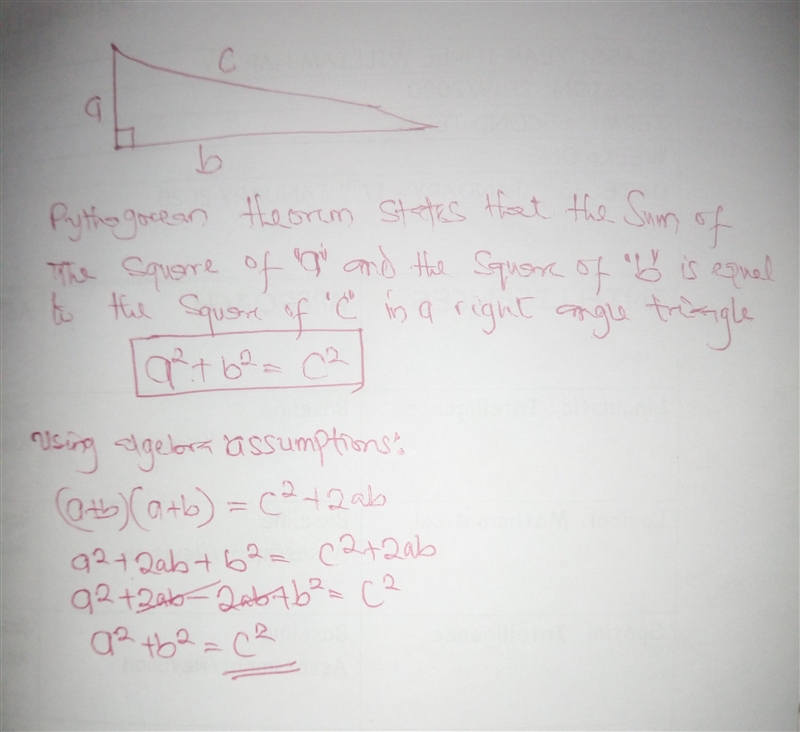 c
a
b
Pythagorean theorem states that the Sum of
The Square of "a" and the Square of "b" is equal
to the Square of "C" in a right angle triangle
a² + b² = c²
Using algebra assumptions:
(a+b)(a+b) = c² + 2ab
a² + 2ab + b² = c² + 2ab
a² + 2ab - 2ab + b² = c²
a² + b² = c²